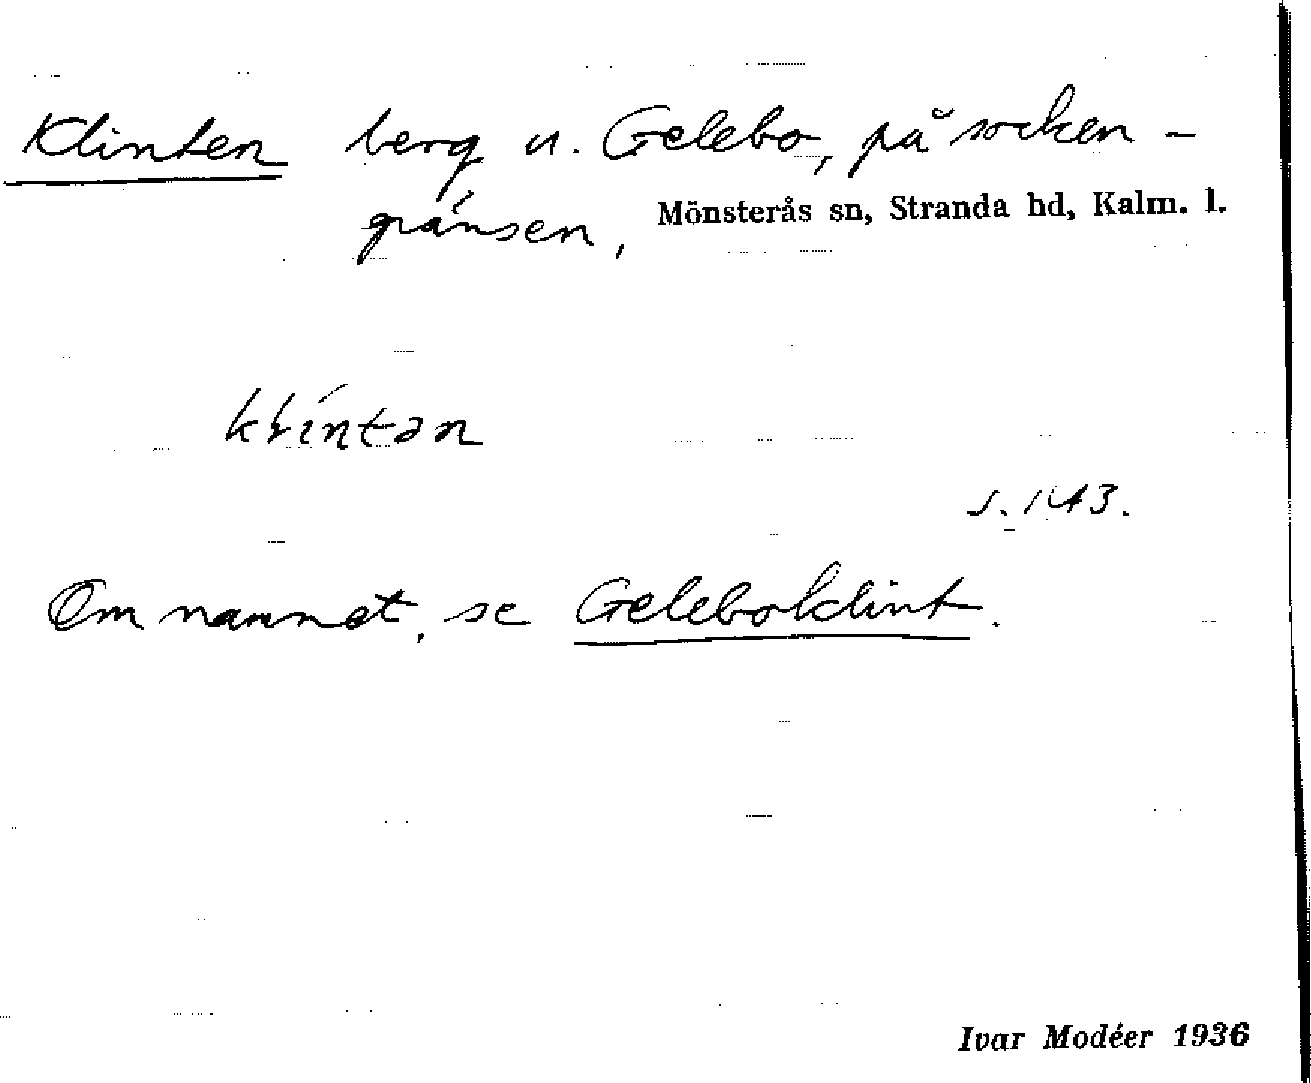 Klinten berg u. Gelebo, på socken-
gränsen, Mönsterås sn, Stranda hd, Kalm. l.
klíntən
s. 143.
Om namnet, se Geleboklint.
Ivar Modéer 1936